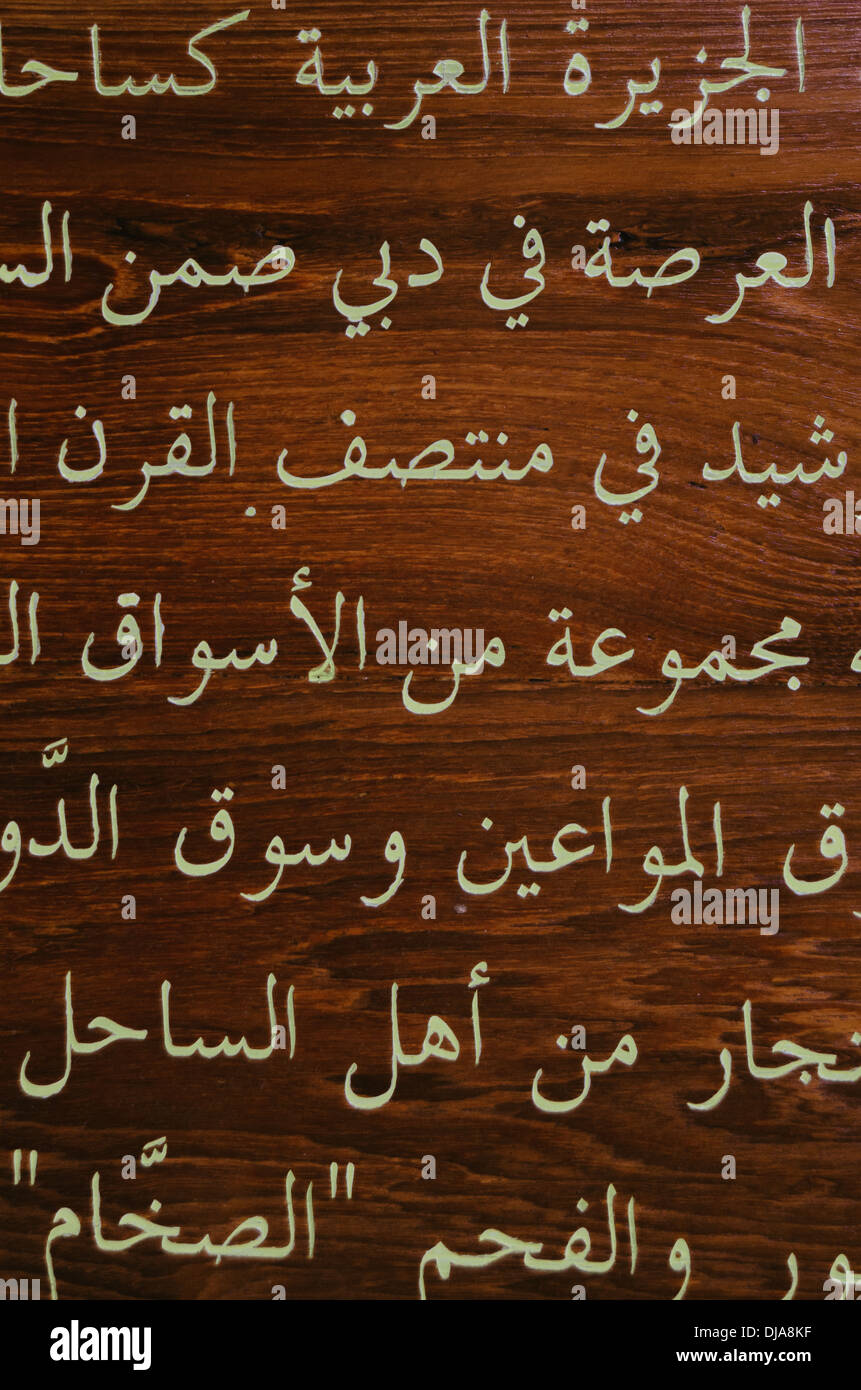 الجزيرة العربية كساحا
العرصة في دبي ضمن الس
شيد في منتصف القرن ا
مجموعة من الأسواق ال
ق المواعين وسوق الدَّو
نجار من أهل الساحل
ور والفحم "الصخَّام"
alamy
Image ID: DJA8KF
www.alamy.com